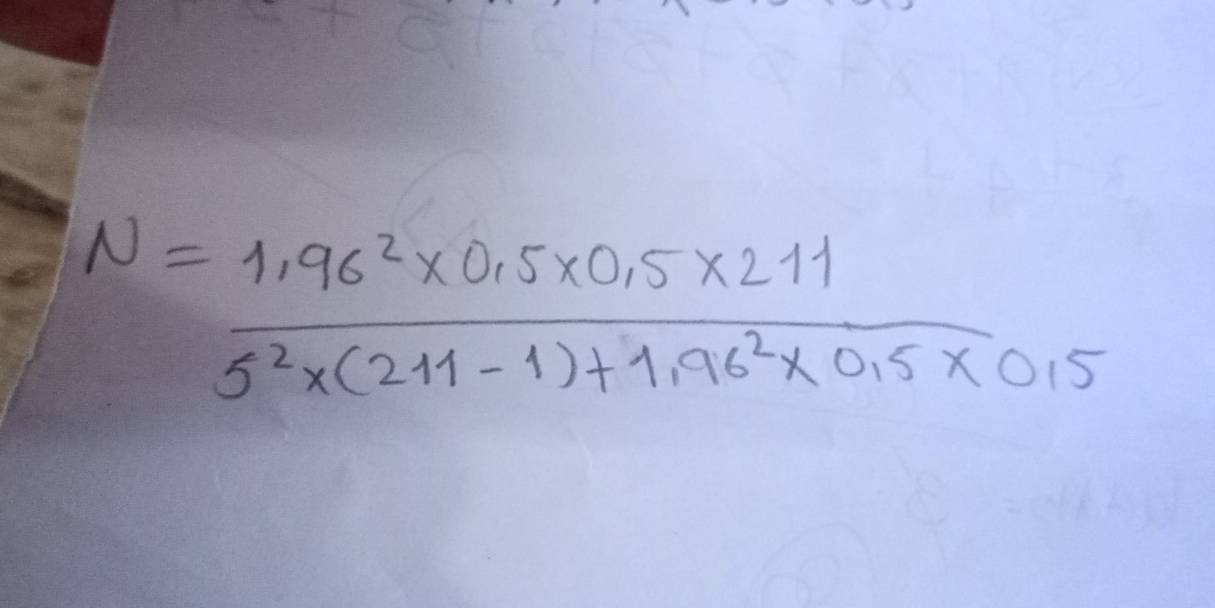 N = 1,96² x 0,5 x 0,5 x 211
5² x (211 - 1) + 1,96² x 0,5 x 0,5